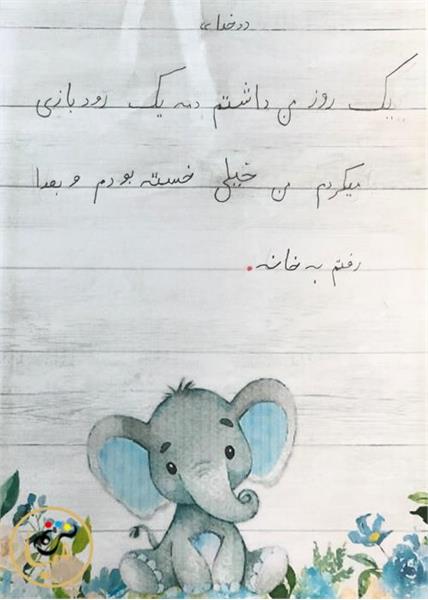 یک روز من داشتم دمه یک رود بازی
میکردم من خیلی خسته بودم و بعدا
رفتم به خانه.